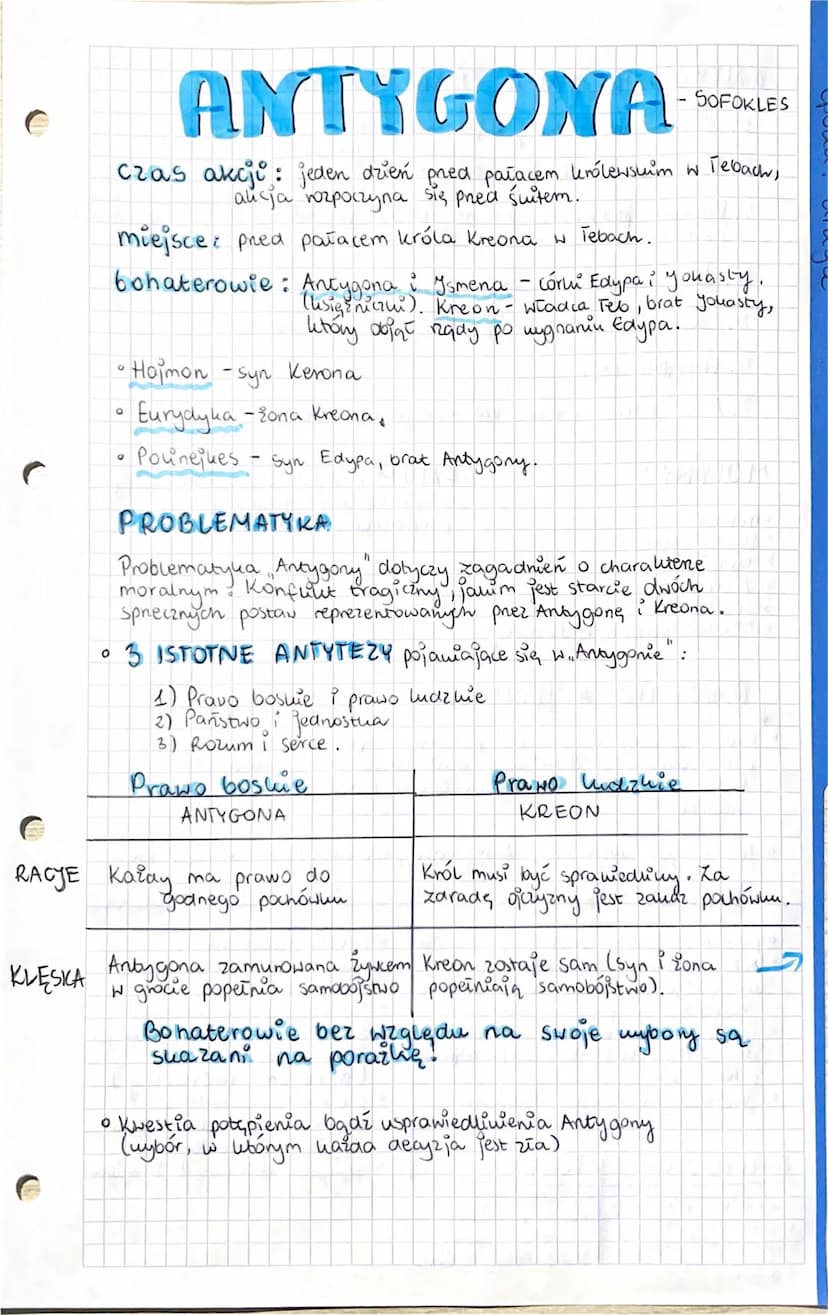 ANTYGONA - SOFOKLES
czas akcji: jeden dzień przed pałacem królewskim w Tebach,
akcja rozpoczyna się przed świtem.
miejsce: przed pałacem króla Kreona w Tebach.
bohaterowie: Antygona i Ismena - córki Edypa i Jokasty.
(księżniczki). Kreon - władca Teb, brat Jokasty,
który objął rządy po wygnaniu Edypa.
• Hajmon - syn Kerona
• Eurydyka - żona Kreona,
• Polinejkes - syn Edypa, brat Antygony.
PROBLEMATYKA
Problematyka „Antygony" dotyczy zagadnień o charakterze
moralnym. Konflikt tragiczny, jakim jest starcie dwóch
sprzecznych postaw reprezentowanych przez Antygonę i Kreona.
• 3 ISTOTNE ANTYTEZY pojawiające się w „Antygonie":
1) Prawo boskie i prawo ludzkie
2) Państwo i jednostka
3) Rozum i serce.
Prawo boskie Prawo ludzkie
ANTYGONA KREON
RACJE Każdy ma prawo do Król musi być sprawiedliwy. Za
godnego pochówku zdradę ojczyzny jest zakaz pochówku.
KLĘSKA Antygona zamurowana żywcem Kreon zostaje sam (syn i żona
w grocie popełnia samobójstwo popełniają samobójstwo).
Bohaterowie bez względu na swoje wybory są
skazani na porażkę!
• Kwestia potępienia bądź usprawiedliwienia Antygony
(wybór, w którym każda decyzja jest zła)